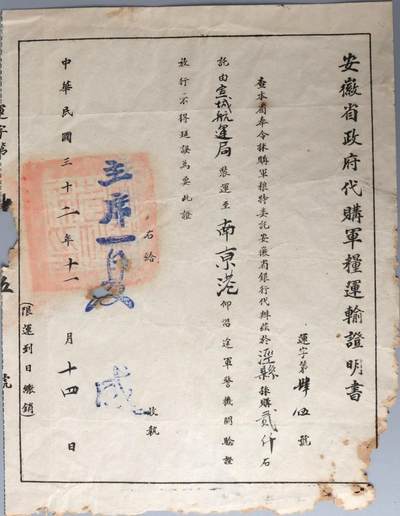 安徽省政府代購軍糧運輸證明書
運字第肆伍號
查本省奉令採購軍糧特委託安徽省銀行代辦茲於涇縣採購貳仟石
託由宣城航運局裝運至南京港仰沿途軍警機關驗證
放行不得延誤為要此證
右給
收執
主席
成
中華民國三十二年十一月十四日
(限運到日繳銷)
運字第
伍
號